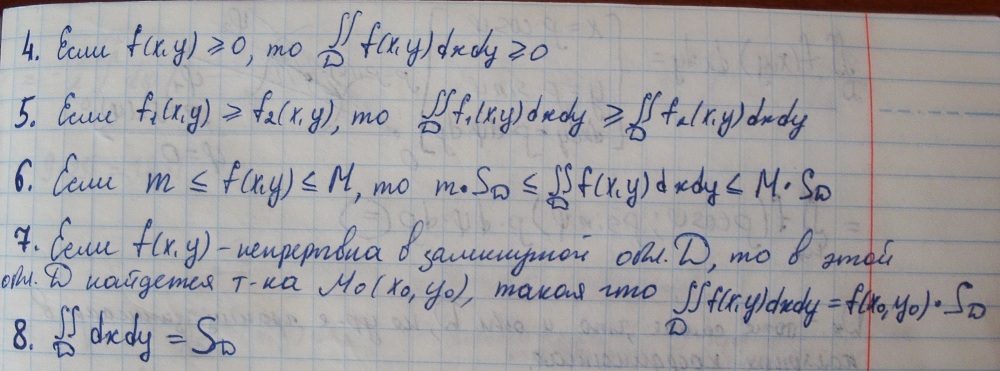 4. Если f(x,y) ≥ 0, то ∬_D f(x,y) dxdy ≥ 0
5. Если f₁(x,y) ≥ f₂(x,y), то ∬_D f₁(x,y) dxdy ≥ ∬_D f₂(x,y) dxdy
6. Если m ≤ f(x,y) ≤ M, то m·S_D ≤ ∬_D f(x,y) dxdy ≤ M·S_D
7. Если f(x,y) - непрерывна в замкнутой обл. D, то в этой
обл. D найдется т-ка M₀(x₀,y₀), такая что ∬_D f(x,y)dxdy = f(x₀,y₀)·S_D
8. ∬_D dxdy = S_D